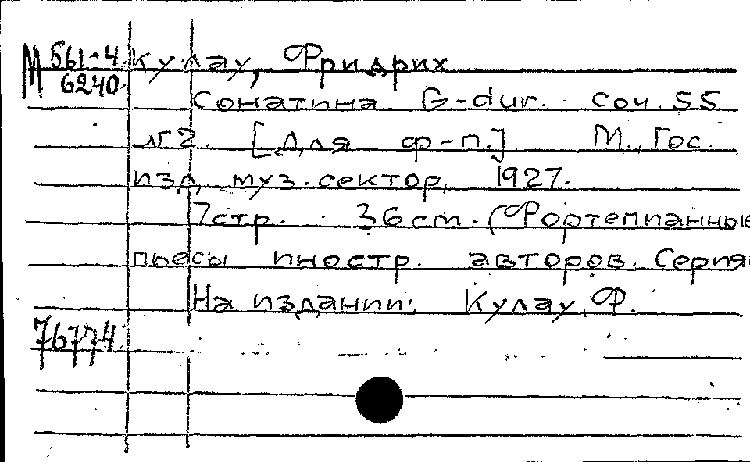 М 561-4 Кулау, Фридрих
6240
Сонатина G-dur. соч. 55
№ 2. [Для ф-п.] М., Гос.
изд. муз. сектор, 1927.
7 стр. 36 cm. (Фортепианные
пьесы иностр. авторов. Серия
На издании: Кулау, Ф.
76774